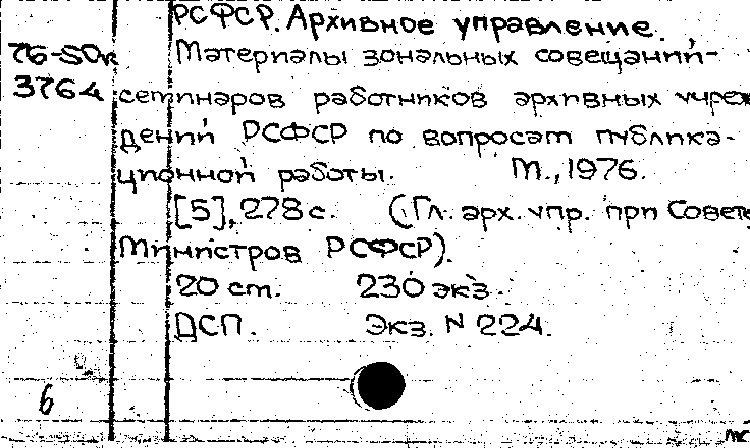 РСФСР. Архивное управление.
76-SDк Материалы зональных совещаний-
3764 семинаров работников архивных учреж
дений РСФСР по вопросам публика-
ционной работы. М., 1976.
[5], 278 с. (Гл. арх. упр. при Совете
Министров РСФСР).
20 см. 230 экз.
ДСП. Экз. N 224.
6